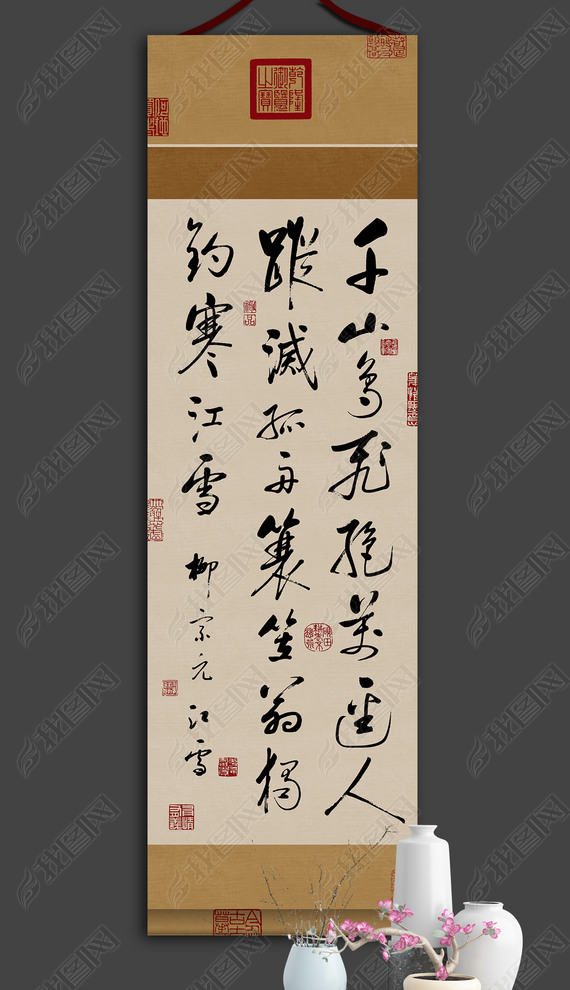 乾隆御覽之寶
千山鳥飛絕萬逕人
蹤滅孤舟簑笠翁獨
釣寒江雪 柳宗元 江雪
我图网